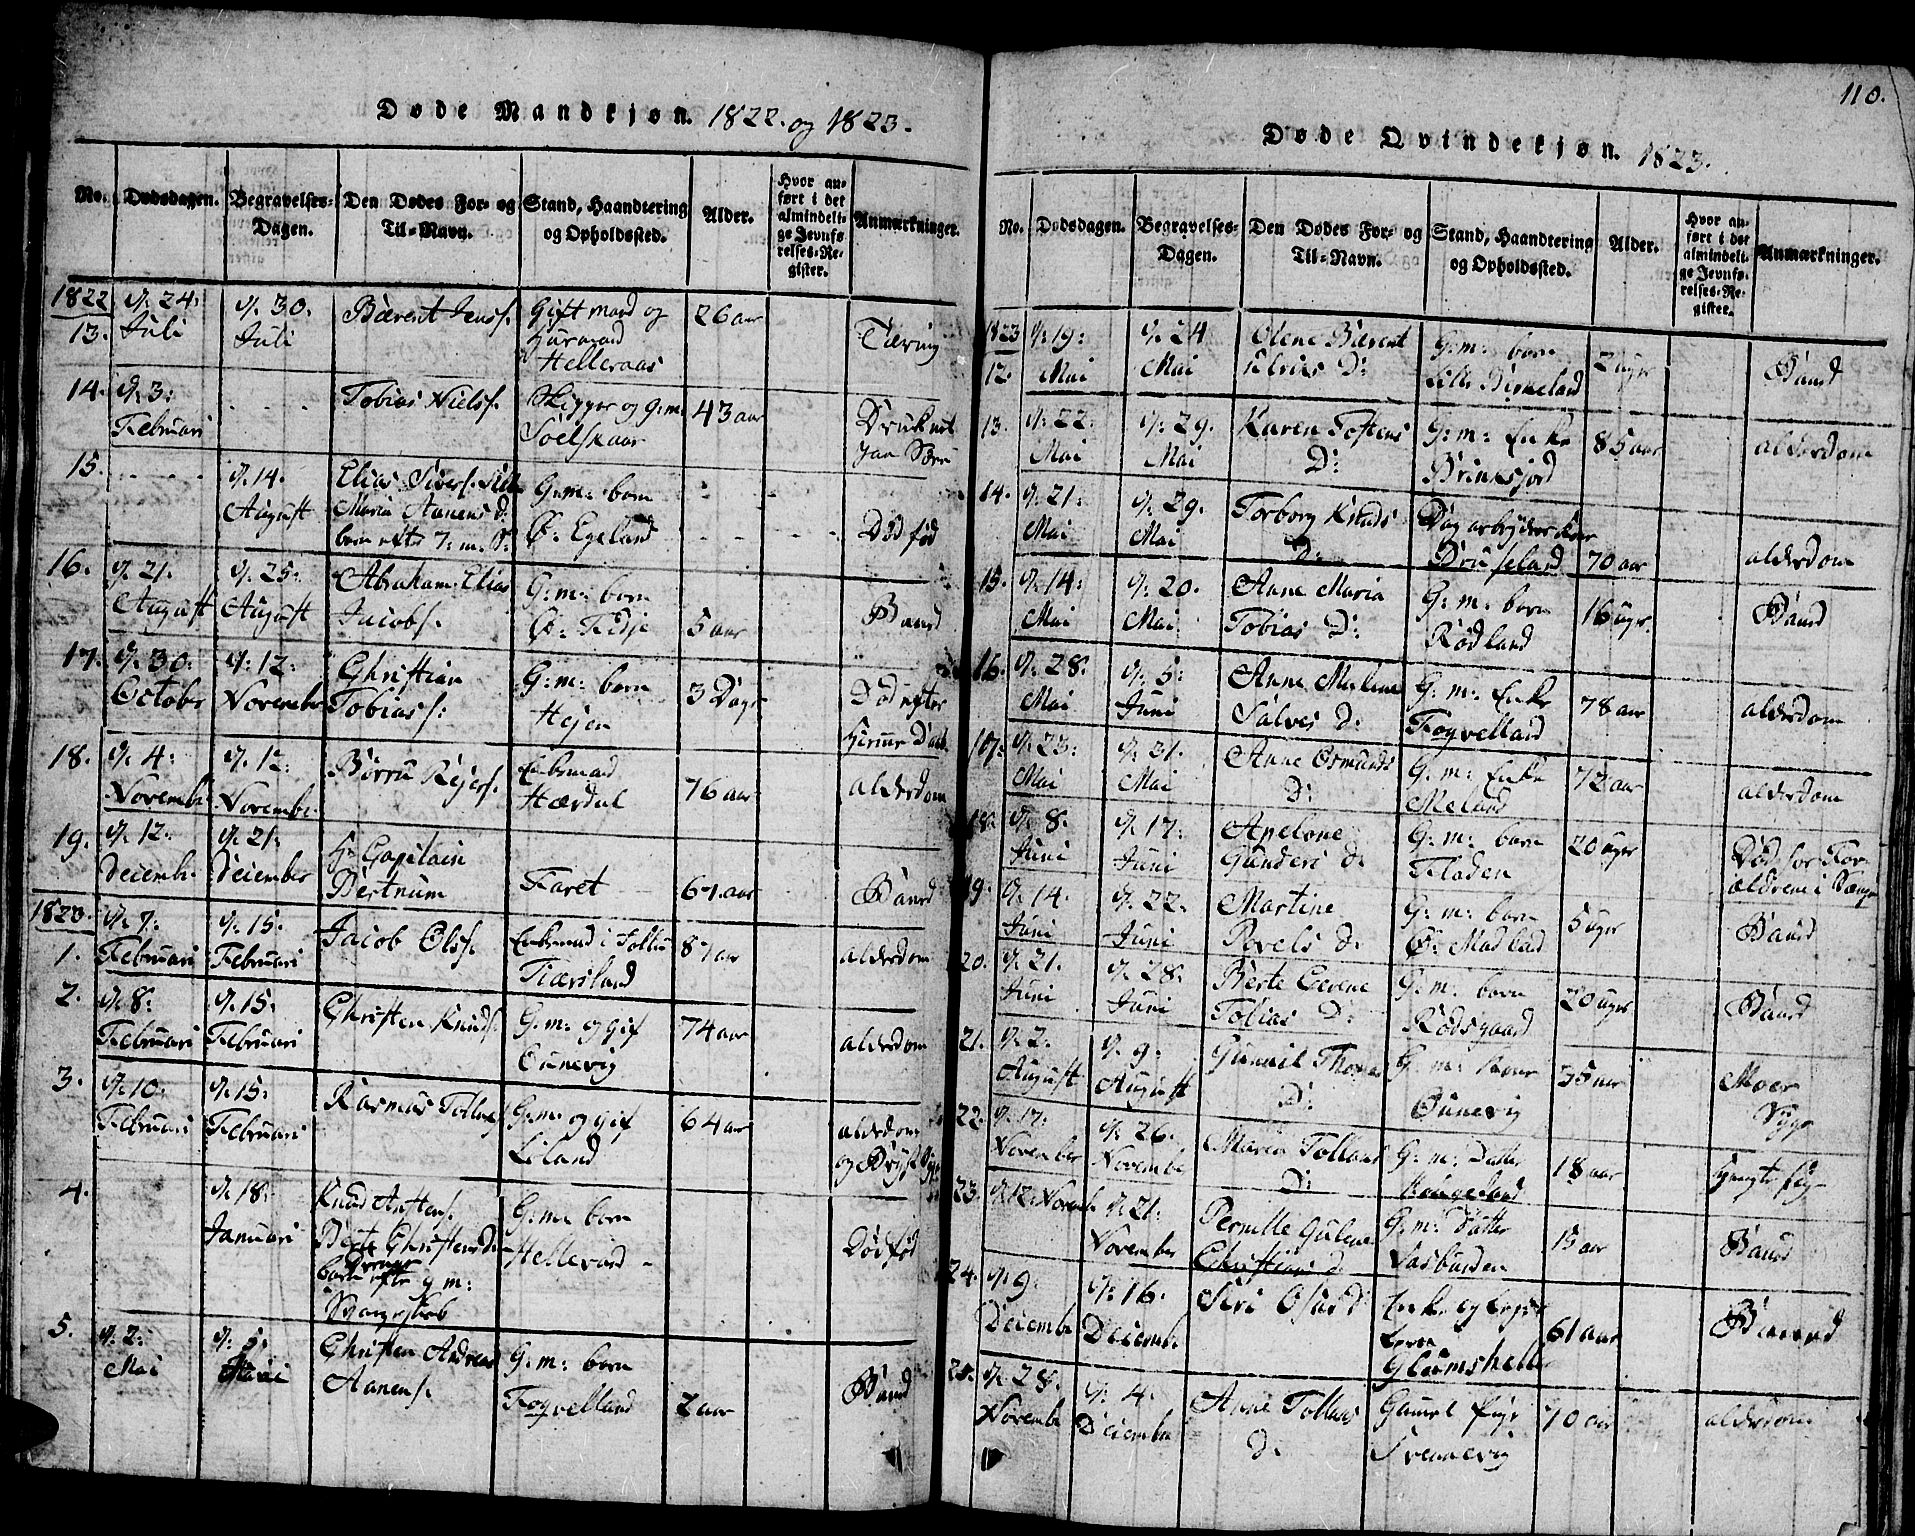 Døde Mandkjøn. 1822. og 1823.
No. Dødsdagen. Begravelses-Dagen. Den Dødes For- og Til-Navn. Stand, Haandtering og Opholdssted. Alder. Hvor anført i det almindelige Jevnførelses-Register. Anmærkninger.
1822
13. d. 24: Juli d. 30. Juli Bærent Jens s. Gift mand og Huusmand Helleraas 26 aar Tæring
14. d. 3: Februari Tobias Niels s. Skipper og G:m: Soelskaar 43 aar Druknet
15. d. 14. August Elias Sivers s. Maria Aanens d: barn efter 7: m. G:m: barn Ø. Egeland Død fød
16. d. 21. August d. 25: August Abraham Elias Jacobs. G:m: barn Ø: Fedje 5 aar Baard
17. d. 30. October d. 12: November Christian Tobias s: G:m: barn Hejen 3 Dage Død efter Hiemme Daab
18. d. 4: November d. 12: November Børru Rejers. Enkemand Hærdal 76 aar alderdom
19. d. 12: December d. 21: December Hr Capitain Bertrum Faret 67 aar Baard
1823.
1. d. 7: Februari d. 15: Februari Jacob Ols s. Enkemand i Follu Fiærsland 87 aar alderdom
2. d. 8: Februari d. 15: Februari Christen Knuds. G:m: og gif Ounevig 74 aar alderdom
3. d. 10: Februari d. 15: Februari Rasmus Tollas G:m: og gif Liland 64 aar alderdom og Bryst Syge
4. d. 18: Januari Knud Anstens. Berte Christens D: barn efter 9 m: Svangerskab G:m: barn Hellevard Død fød
5. d. 2: Mai d. 5: Christen Andreas Aanens. G:m: barn Foqvelland 2 aar Baard
110.
Døde Qvindekjøn. 1823.
No. Dødsdagen. Begravelses-Dagen. Den Dødes For- og Til-Navn. Stand, Haandtering og Opholdssted. Alder. Hvor anført i det almindelige Jevnførelses-Register. Anmærkninger.
1823
12. d. 19: Mai d. 24 Mai Olene Bærent Elvies D: G:m: barn Lille Birkeland 2 uger Baard
13. d. 22: Mai d. 29. Mai Karen Tostens D: G:m: Enke Brinksjord 85 aar alderdom
14. d. 21: Mai d. 29. Mai Torborg Knuds D: Dagarbejders Kone Drueseland 70 aar alderdom
15. d. 14: Mai d. 20. Mai Anne Maria Tobias D: G:m: barn Rødland 16 uger. Baard
16. d. 28: Mai d. 5: Juni Anne Malene Salves D: G:m: Enke Foqvelland 78 aar alderdom
17: d. 23: Mai d. 31. Mai Anne Osmunds D: G:m: Enke Meland 72 aar alderdom
18. d. 8. Juni d. 17: Juni Apelone Gunders D: G:m: barn Floden 20 uger Død for Forældrene i Senge
19. d. 14. Juni d. 22. Juni Martine Povels D: G:m: barn Ø: Madland 5 uger Baard
20. d. 21. Juni d. 28. Juni Berte Cerene Tobias D: G:m: barn Rødsgaard 20 uger Baard
21. d. 2. August d. 9: August Gunnil Thomas D: G:m: Kone Ounevig 35 aar Moer Syge
22. d. 17: November d. 26. November Maria Tollaas D: G:m: Datter Hougeland 18 aar
23. d. 12. November d. 21: November Pernille Gulene Christians D: G:m: Datter Lasbunden 15 aar Baard
24. d. 9: December d. 16: December Siri Osuls D: Glomsheia 61 aar
25. d. 28: November d. 4. December Anne Tollaas D: Gamel pige Svennevig 70 aar alderdom